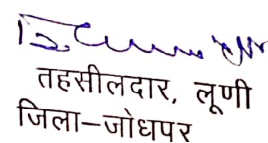 तहसीलदार, लूणी
जिला–जोधपर